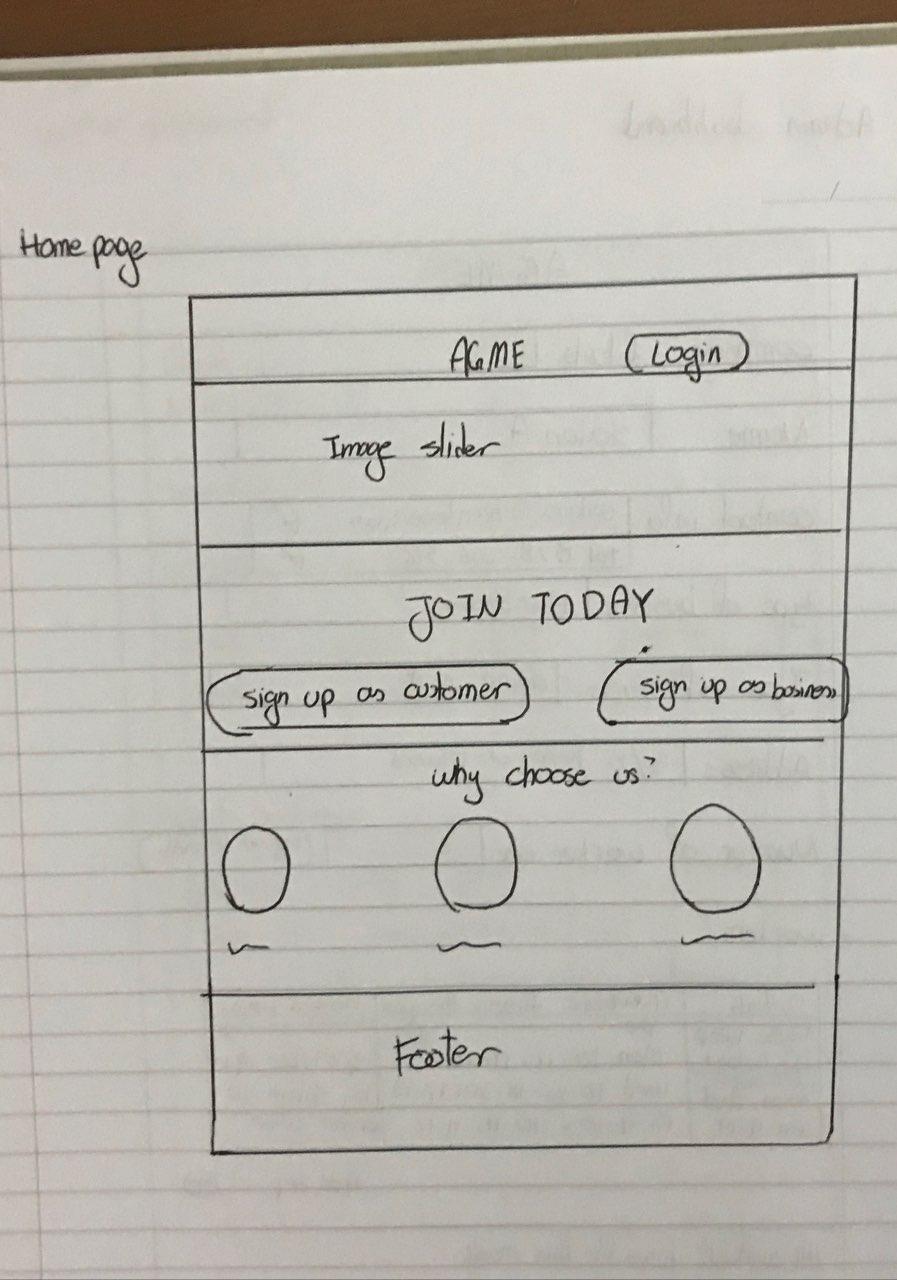 Home page
AGME
Login
Image slider
JOIN TODAY
sign up as customer
sign up as business
why choose us?
Footer